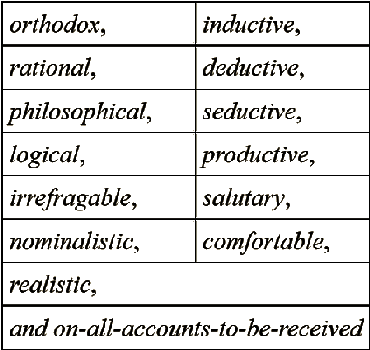 orthodox, inductive,
rational, deductive,
philosophical, seductive,
logical, productive,
irrefragable, salutary,
nominalistic, comfortable,
realistic,
and on-all-accounts-to-be-received